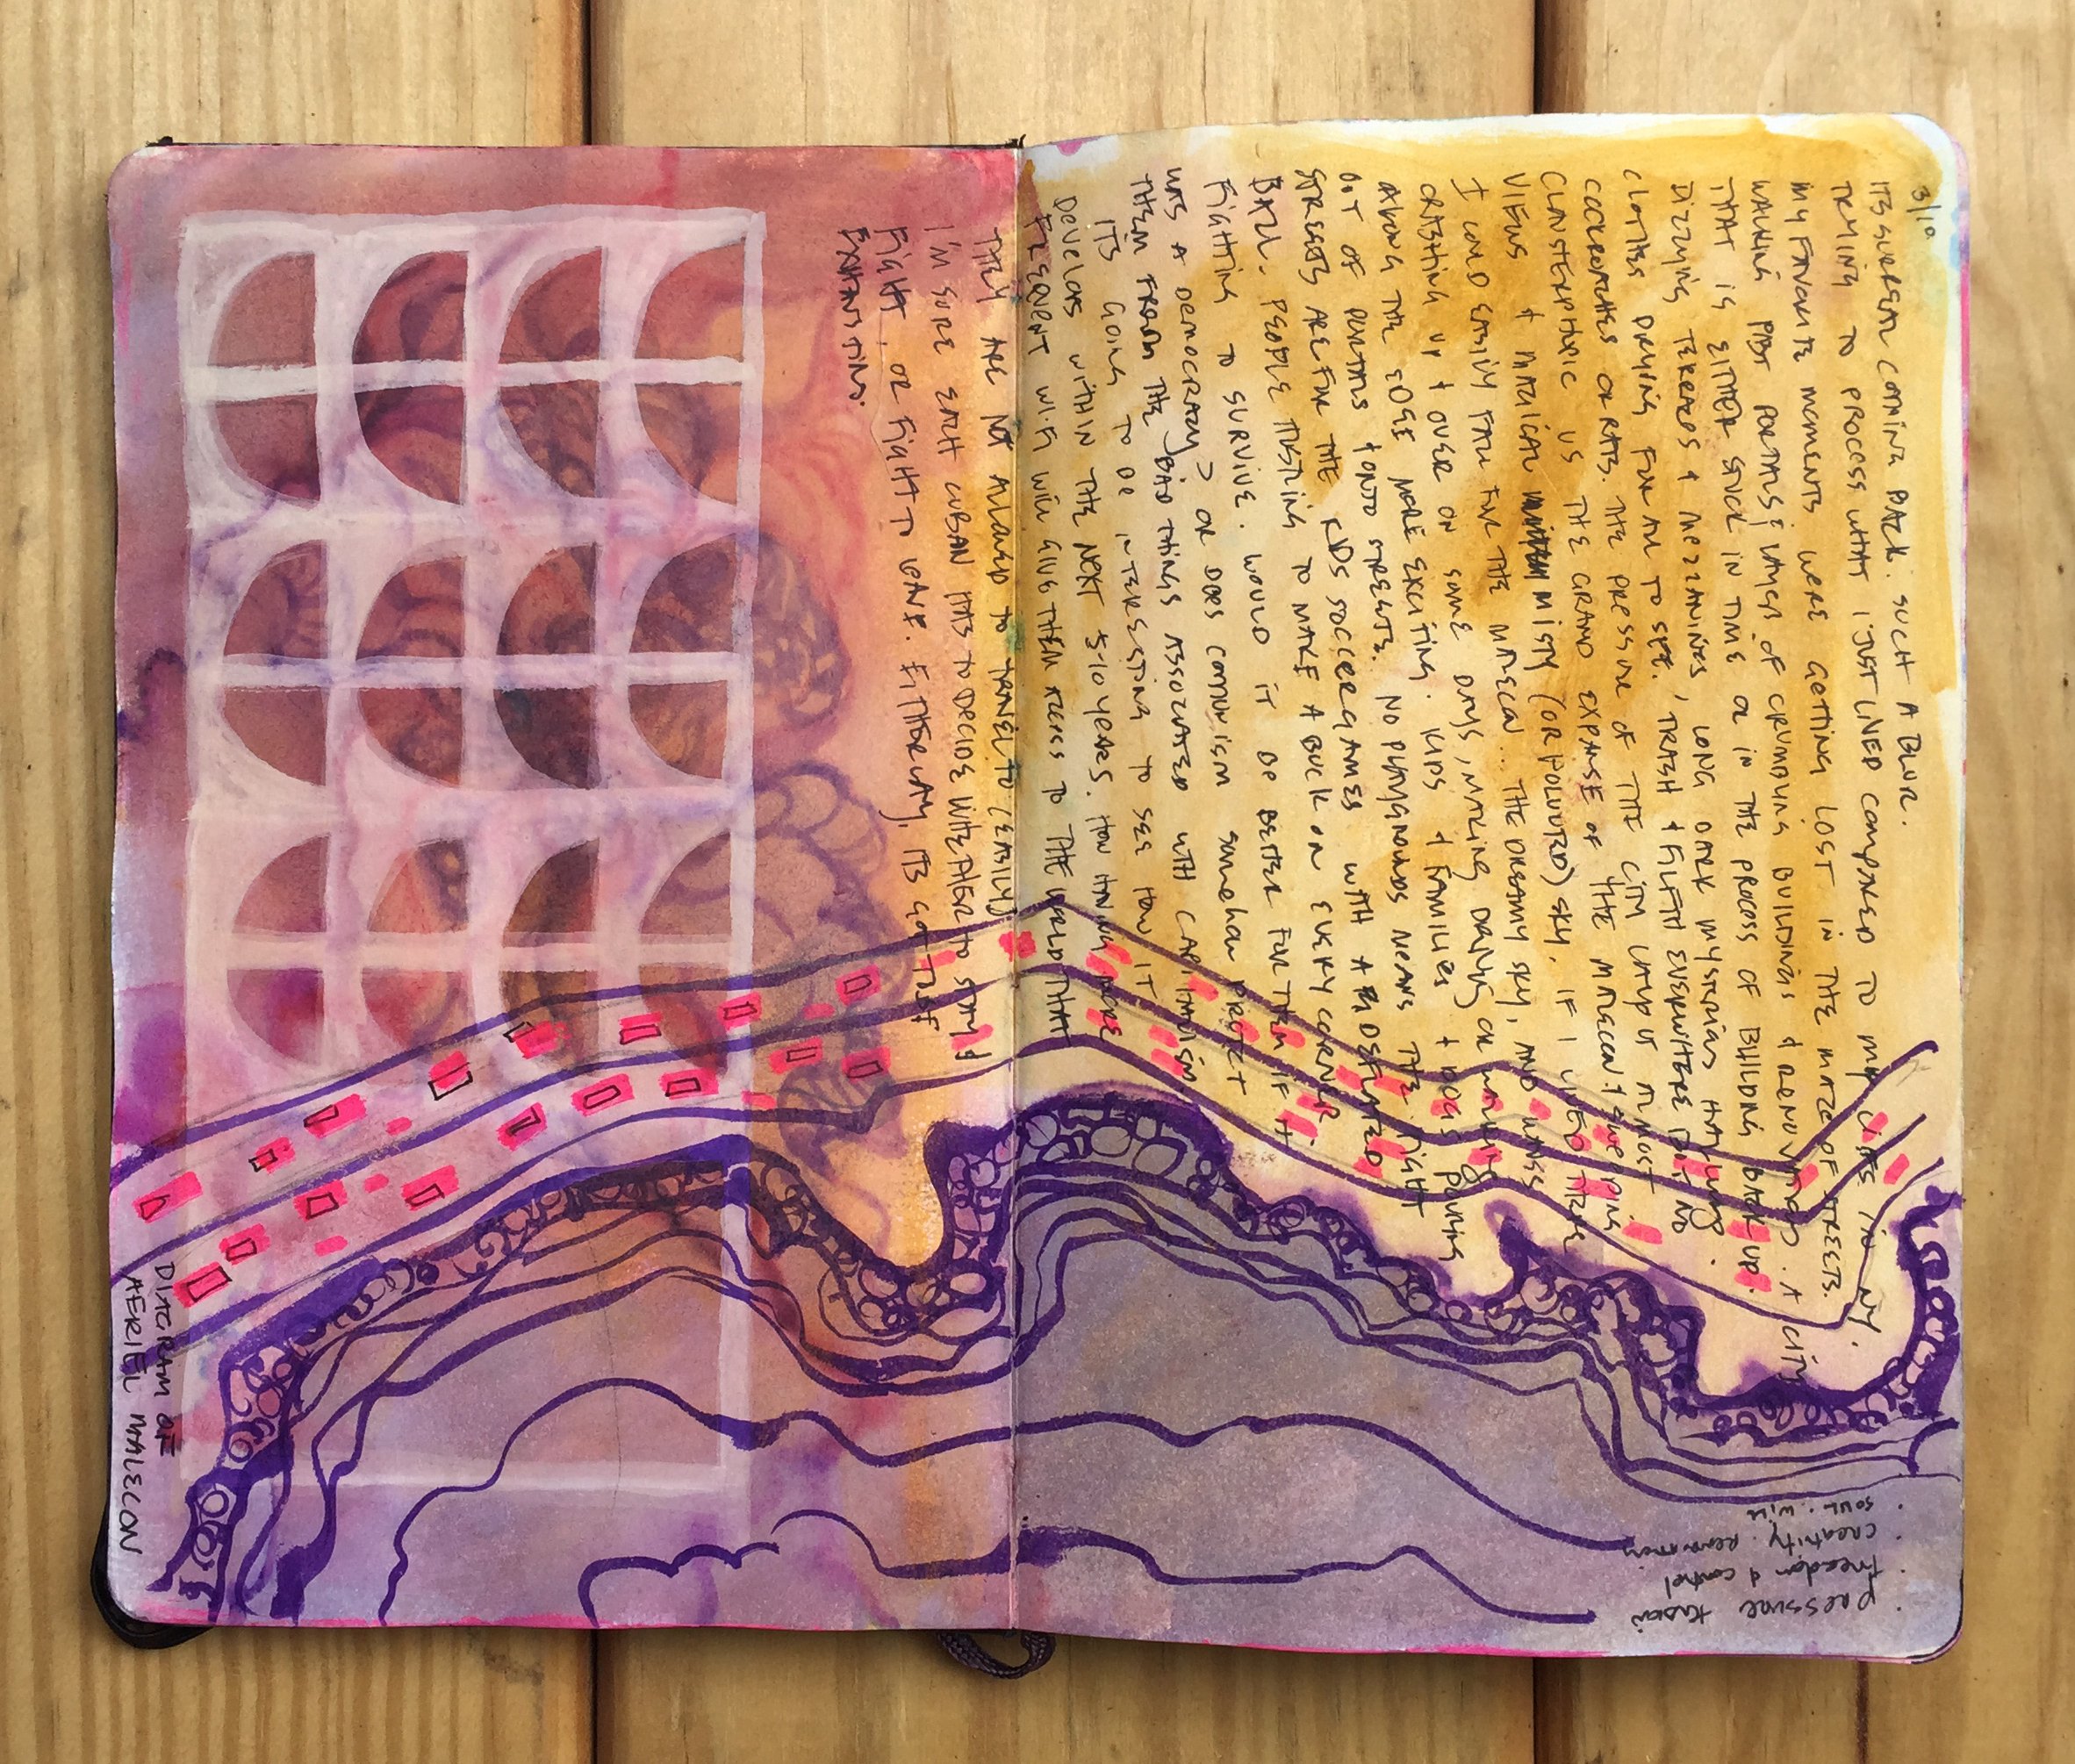 3/10
ITS SURREAL COMING BACK. SUCH A BLUR.
TRYING TO PROCESS WHAT I JUST LIVED COMPARED TO MY LIFE IN NY.
MY FAVORITE MOMENTS WERE GETTING LOST IN THE MAZE OF STREETS.
WALKING PAST PORTALS & WAYS OF CRUMBLING BUILDINGS & RENOVATED. A CITY
THAT IS EITHER STUCK IN TIME OR IN THE PROCESS OF BUILDING BACK UP.
DIZZYING TERRACES & MEZZANINES, LONG DARK MYSTERIOUS HALLWAYS.
CLOTHES DRYING FOR ALL TO SEE. TRASH & FILTH EVERYWHERE BUT NO
COCKROACHES OR RATS. THE PRESSURE OF THE CITY LAYOUT ALMOST
CLAUSTERPHOBIC VS THE GRAND EXPANSE OF THE MALECON & SWEEPING
VIEWS & MAGICAL MISTY (OR POLLUTED) SKY. IF I LIVED THERE
I COULD EASILY FALL FOR THE MALECON... THE DREAMY SKY, AND WAVES
CRASHING UP & OVER ON SOME DAYS, MAKING DRIVING OR WALKING
ALONG THE EDGE MORE EXCITING. KIDS & FAMILIES & DOGS POURING
OUT OF PORTALS & ONTO STREETS. NO PLAYGROUNDS MEANS THE TIGHT
STREETS ARE FOR THE KIDS SOCCER GAMES WITH A DEFLATED
BALL. PEOPLE HUSTLING TO MAKE A BUCK ON EVERY CORNER
FIGHTING TO SURVIVE. WOULD IT BE BETTER FOR THEM IF IT
WAS A DEMOCRACY? OR DOES COMMUNISM SOMEHOW PROTECT
THEM FROM THE BAD THINGS ASSOCIATED WITH CAPITALISM
ITS GOING TO BE INTERESTING TO SEE HOW IT
DEVELOPS WITHIN THE NEXT 5-10 YEARS. HOW HAVING MORE
FREQUENT WIFI WILL GIVE THEM ACCESS TO THE WORLD THAT
THEY ARE NOT ALLOWED TO TRAVEL TO (EASILY)
I'M SURE EACH CUBAN HAS TO DECIDE WHETHER TO STAY &
FIGHT, OR FIGHT TO LEAVE. EITHER WAY, ITS GOT TO BE
EXHAUSTING.
DIAGRAM OF
AERIEL MALECON
• PRESSURE TENSION
• FREEDOM & CONTROL
• CREATIVITY.
SOUL. WILL